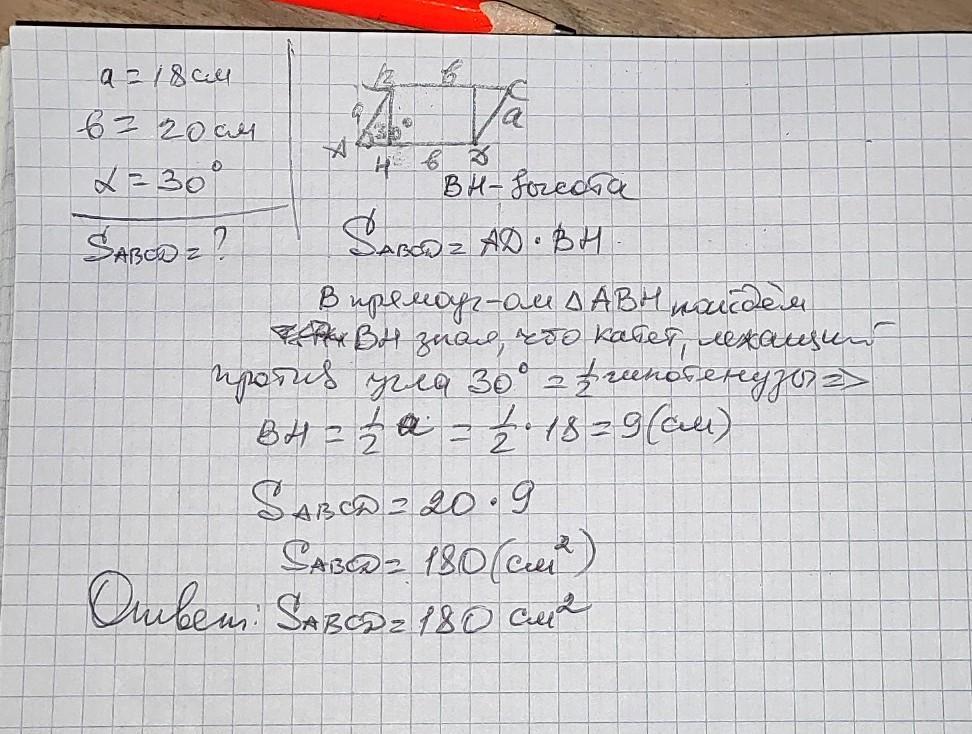 a = 18 см
в = 20 см
α = 30°
S ABCD = ?
B в C
a 30° a
A H в D
BH - высота
S ABCD = AD · BH
В прямоуг-ом Δ ABH найдём
BH зная, что катет, лежащий
против угла 30° = 1/2 гипотенузы =>
BH = 1/2 a = 1/2 · 18 = 9 (см)
S ABCD = 20 · 9
S ABCD = 180 (см²)
Ответ: S ABCD = 180 см²